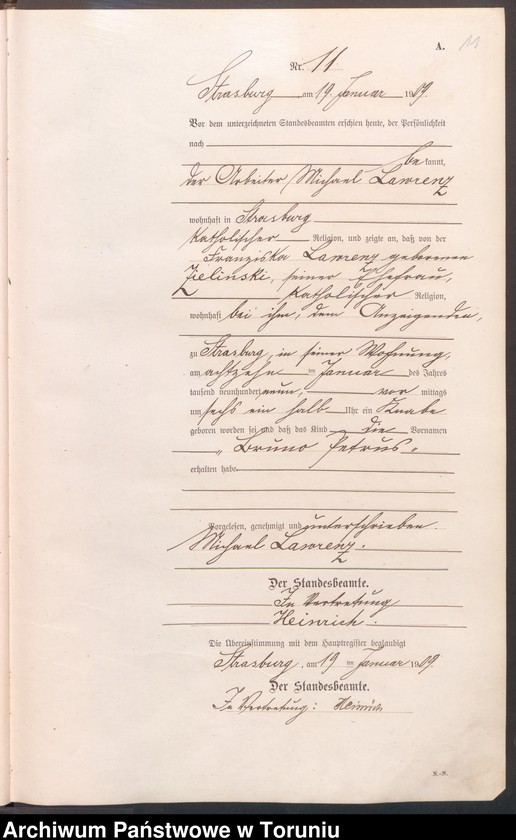 A.
11
Nr. 11
Strasburg am 19. Januar 1909.
Vor dem unterzeichneten Standesbeamten erschien heute, der Persönlichkeit
nach
bekannt,
der Arbeiter Michael Lawrenz
wohnhaft in Strasburg
katholischer Religion, und zeigte an, daß von der
Franziska Lawrenz geborenen
Zielinski, seiner Ehefrau,
katholischer Religion,
wohnhaft bei ihm, dem Anzeigenden,
zu Strasburg, in seiner Wohnung,
am achtzehn ten Januar des Jahres
tausend neunhundert neun, vor mittags
um sechs ein halb Uhr ein Knabe
geboren worden sei und daß das Kind die Vornamen
„Bruno Petrus"
erhalten habe.
Vorgelesen, genehmigt und unterschrieben.
Michael Lawrenz.
Der Standesbeamte.
In Vertretung
Heinrich.
Die Übereinstimmung mit dem Hauptregister beglaubigt
Strasburg, am 19 ten Januar 1909.
Der Standesbeamte.
In Vertretung: Heinrich
Archiwum Państwowe w Toruniu